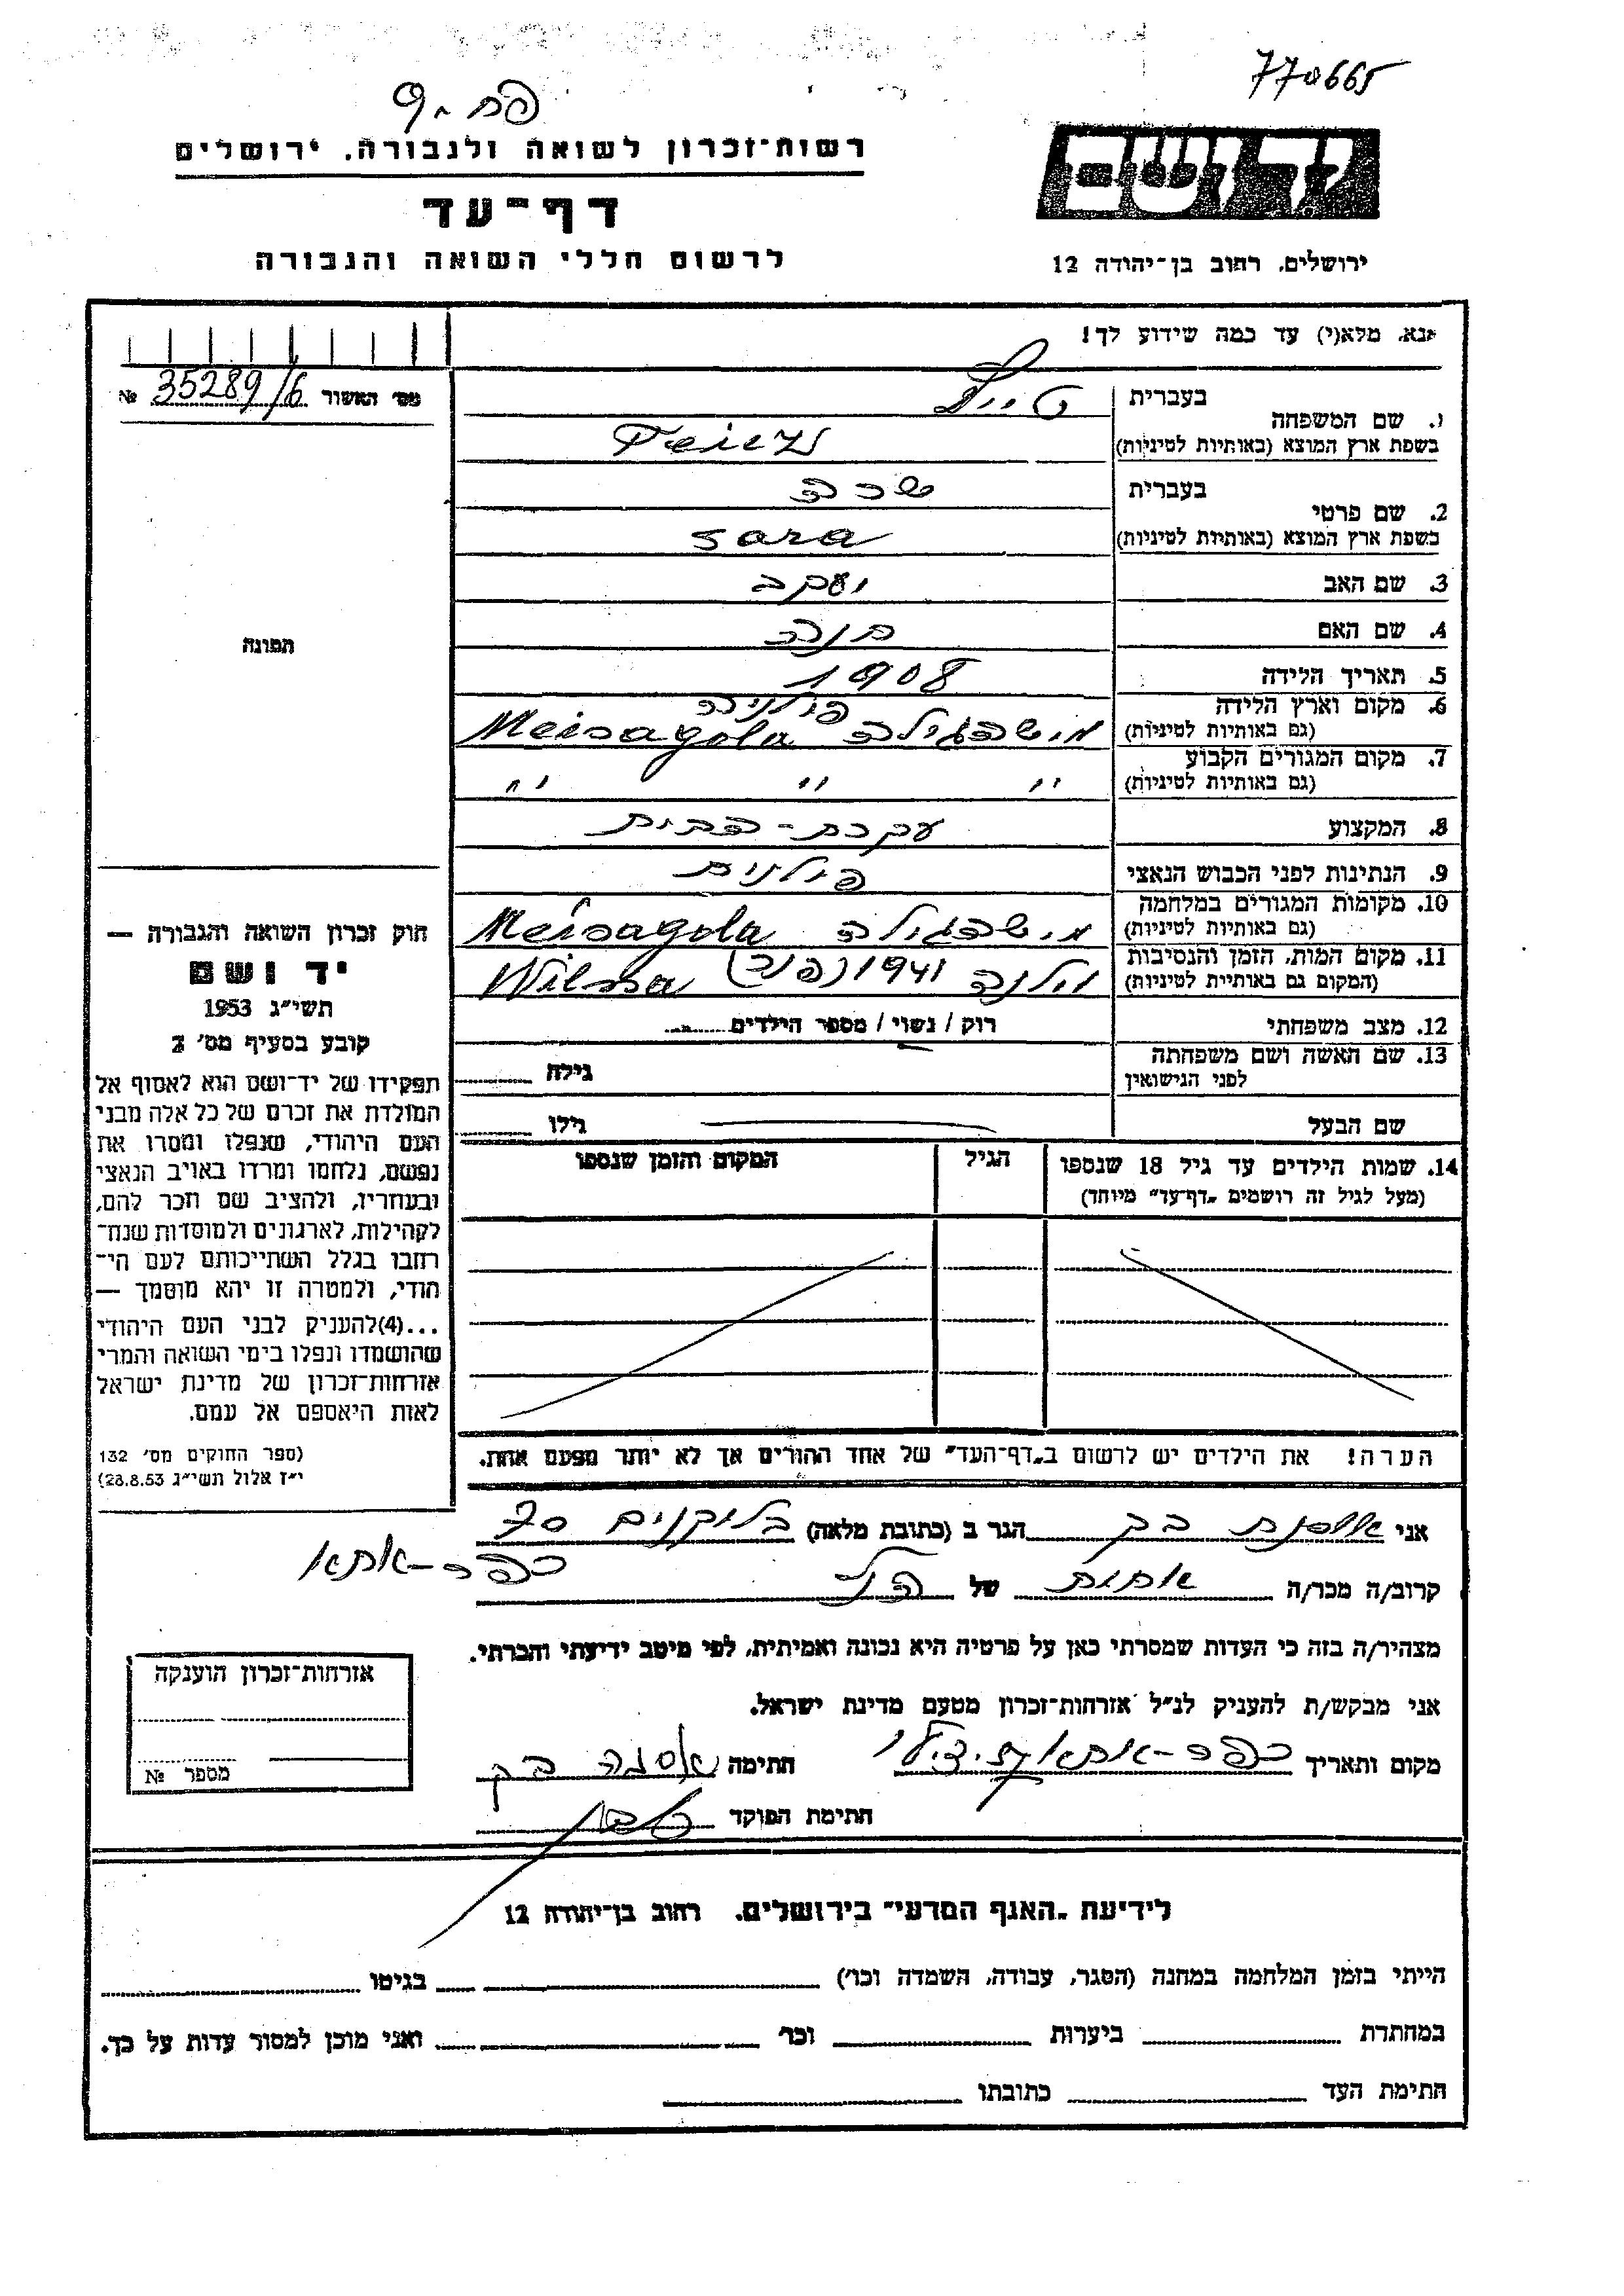 770665
רשות־זכרון לשואה ולגבורה. ירושלים
דף־עד
לרשום חללי השואה והגבורה
ירושלים. רחוב בן־יהודה 12
אנא. מלא(י) עד כמה שידוע לך!
מס׳ האשור 35289/6 №
בעברית
1. שם המשפחה
בשפת ארץ המוצא (באותיות לטיניות)
בעברית שרה
2. שם פרטי
בשפת ארץ המוצא (באותיות לטיניות) Sara
3. שם האב יעקב
4. שם האם חנה
5. תאריך הלידה 1908
6. מקום וארץ הלידה
(גם באותיות לטיניות) מישהגולה Meisagola
7. מקום המגורים הקבוע
(גם באותיות לטיניות) " " "
8. המקצוע עקרת-הבית
9. הנתינות לפני הכבוש הנאצי פולנית
10. מקומות המגורים במלחמה
(גם באותיות לטיניות) מישהגולה Meisagola
11. מקום המות, הזמן והנסיבות
(המקום גם באותיית לטיניות) וילנה 1941 Wilna
12. מצב משפחתי רוק / נשוי / מספר הילדים
13. שם האשה ושם משפחתה
לפני הנישואין גילה
שם הבעל גילו
14. שמות הילדים עד גיל 18 שנספו הגיל המקום והזמן שנספו
(מעל לגיל זה רושמים „דף־עד״ מיוחד)
הערה! את הילדים יש לרשום ב„דף־העד״ של אחד ההורים אך לא יותר מפעם אחת.
תמונה
חוק זכרון השואה והגבורה —
יד ושם
תשי״ג 1953
קובע בסעיף מס׳ 2
תפקידו של יד־ושם הוא לאסוף אל
המולדת את זכרם של כל אלה מבני
העם היהודי, שנפלו ומסרו את
נפשם, נלחמו ומרדו באויב הנאצי
ובעוזריו, ולהציב שם וזכר להם,
לקהילות, לארגונים ולמוסדות שנח־
רבו בגלל השתייכותם לעם הי־
הודי, ולמטרה זו יהא מוסמך —
...(4)להעניק לבני העם היהודי
שהושמדו ונפלו בימי השואה והמרי
אזרחות־זכרון של מדינת ישראל
לאות היאספם אל עמם.
(ספר החוקים מס׳ 132
י״ז אלול תשי״ג 28.8.53)
אני אוסנת בק הגר ב (כתובת מלאה) 70
כפר-אתא
קרוב/ה מכר/ה אחות של הנ״ל
מצהיר/ה בזה כי העדות שמסרתי כאן על פרטיה היא נכונה ואמיתית, לפי מיטב ידיעתי והכרתי.
אני מבקש/ת להעניק לנ״ל אזרחות־זכרון מטעם מדינת ישראל.
מקום ותאריך כפר-אתא חתימה אסנה בק
חתימת הפוקד
אזרחות־זכרון הוענקה
מספר №
לידיעת „האגף המדעי״ בירושלים. רחוב בן־יהודה 12
הייתי בזמן המלחמה במחנה (הסגר, עבודה, השמדה וכו׳) בגיטו
במחתרת ביערות וכו׳ ואני מוכן למסור עדות על כך.
חתימת העד כתובתו